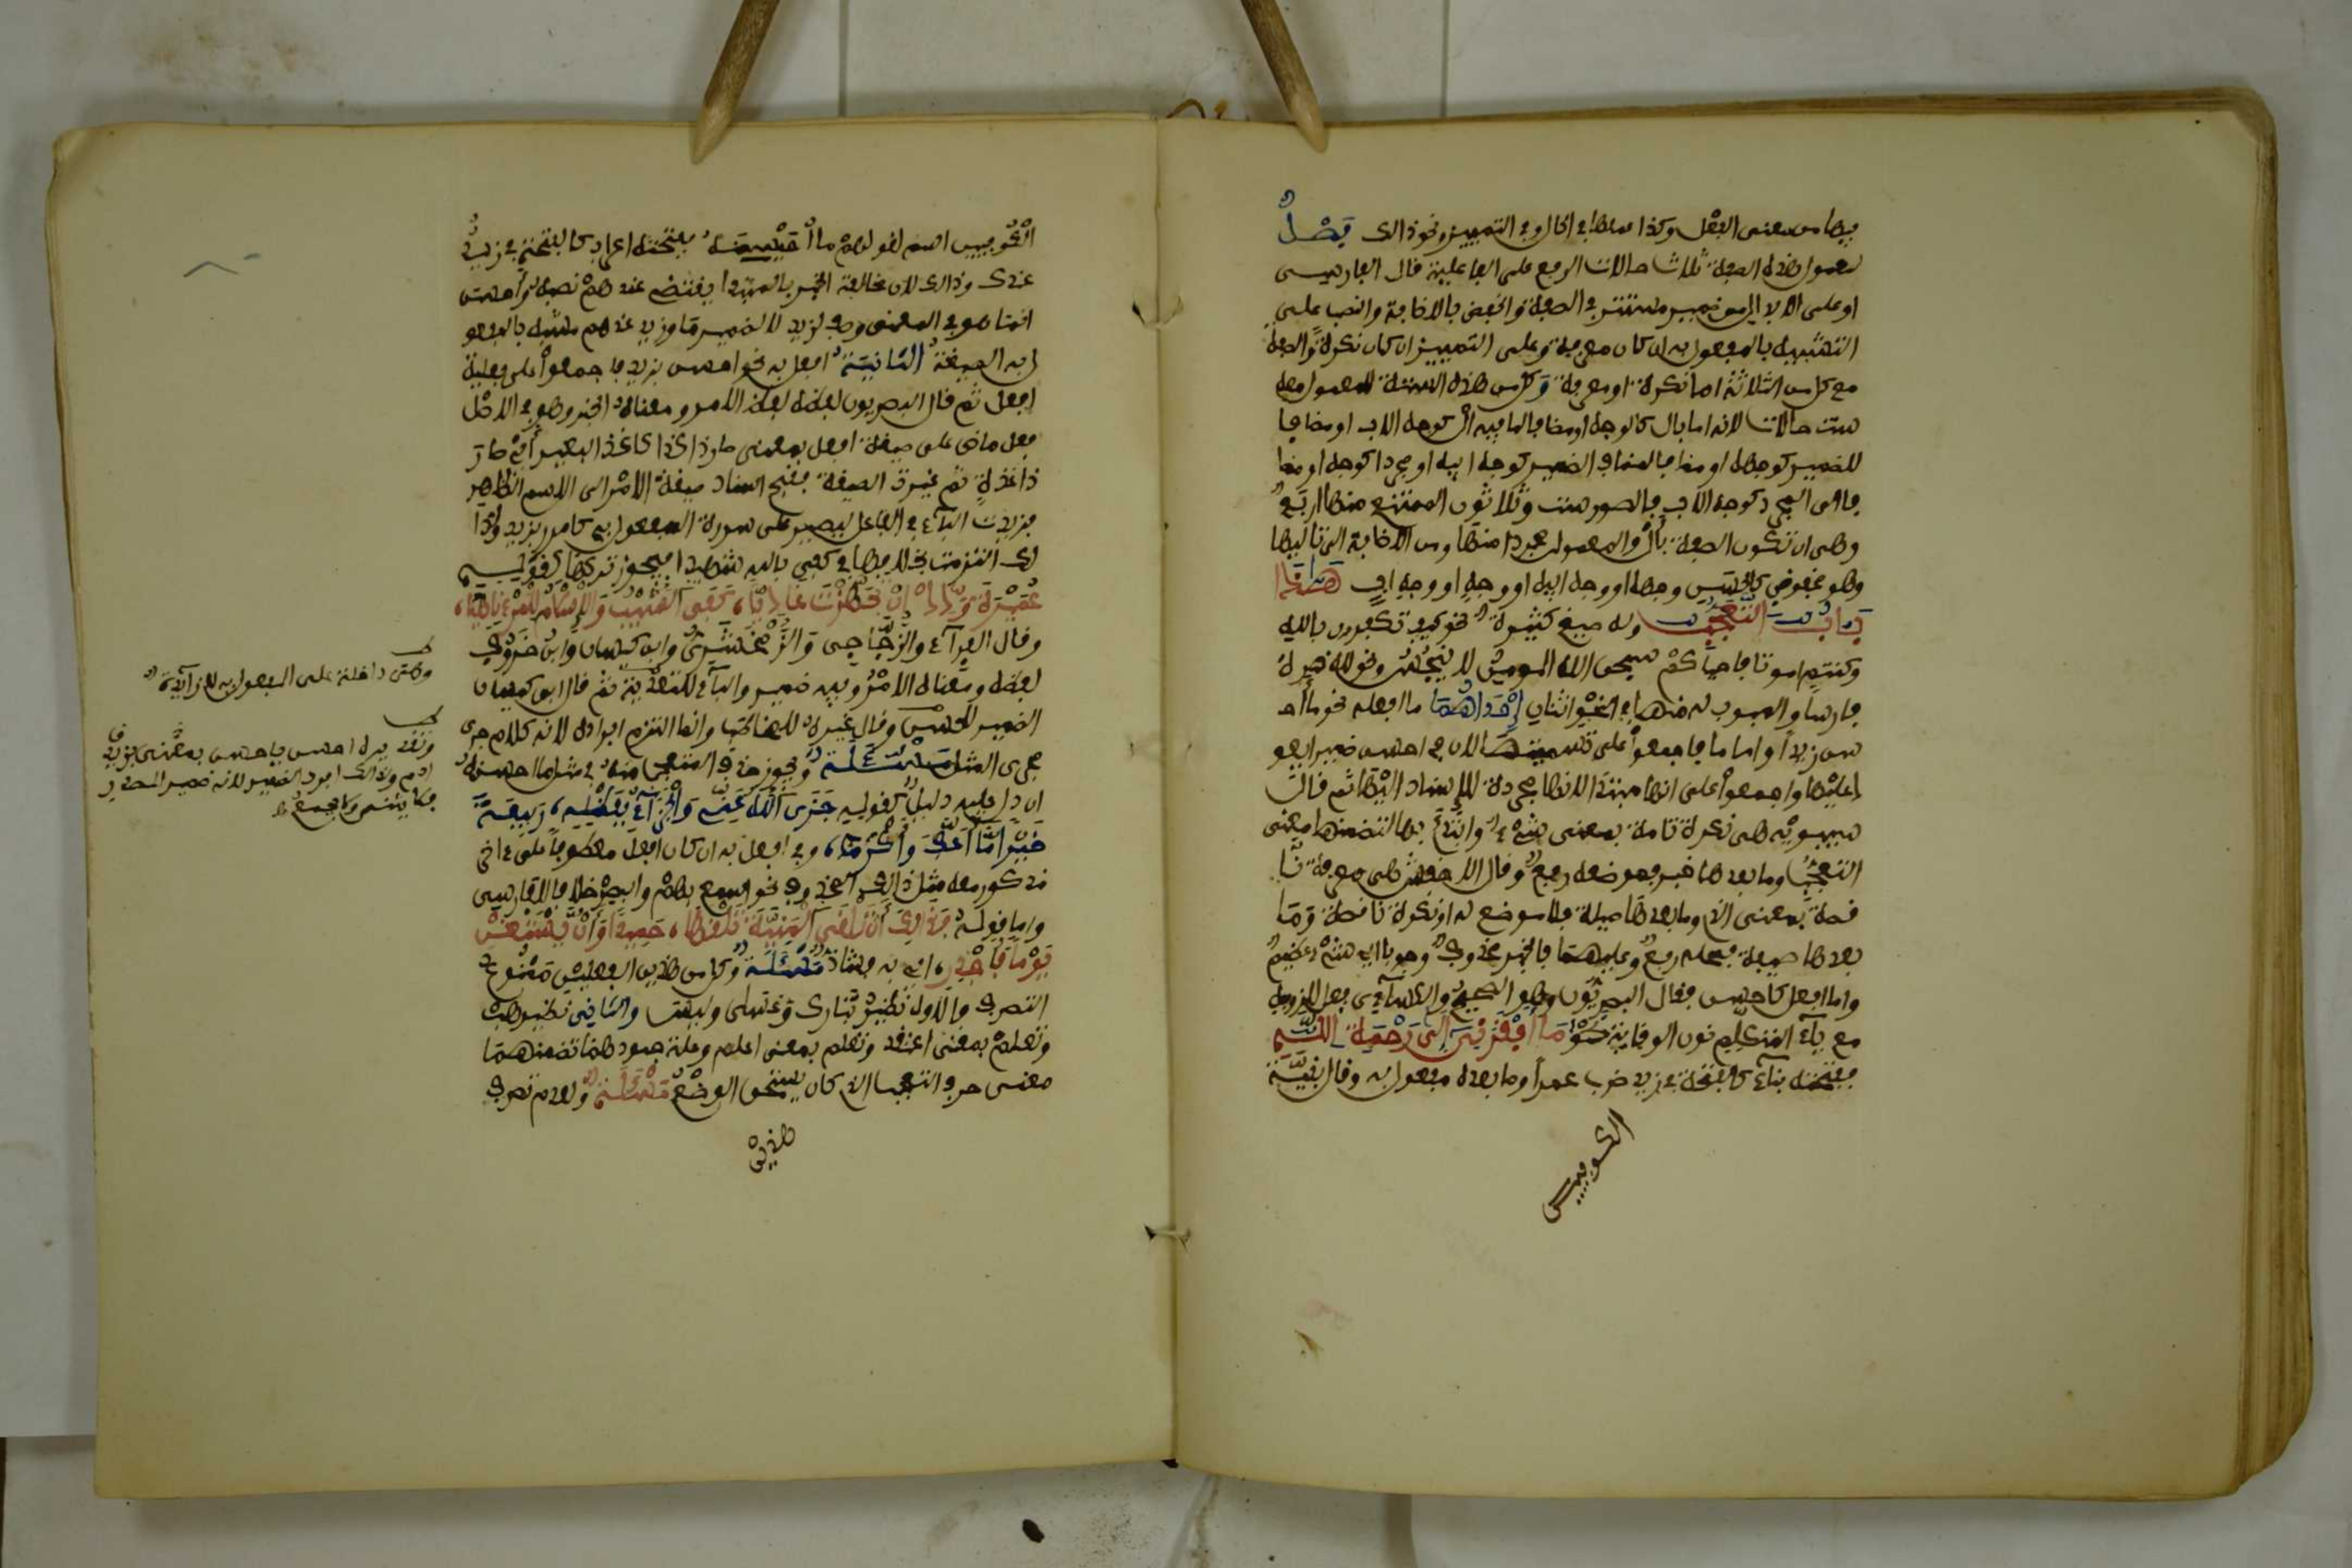 فيها من معنى الفعل وكذا عملها في الحال وفي التمييز ونحو ذالك فصل
لمعمول هذه الصفة ثلاث حالات الرفع على الفاعلية قال الفارسي
او على الابدال من ضمير مستتر في الصفة والخفض بالاضافة والنصب على
التشبيه بالمفعول به ان كان معرفة وعلى التمييز ان كان نكرة والصفة
مع كل من الثلاثة اما نكرة او معرفة وكل من هذه الستة للمعمول معه
ست حالات لانه اما بال كالوجه او مضاف لما فيه ال كوجه الاب او مضاف
للضمير كوجهه او مضاف لمضاف الضمير كوجه ابيه او مجردا كوجه او مضا
فا الى المجرد كوجه اب فالصور ست وثلاثون الممتنع منها اربع
وهي ان تكون الصفة بأل والمعمول مجردا منها ومن الاضافة الى تاليها
وهو مخفوض كالحسن وجهه او وجه ابيه او وجه او وجه اب هـذا
باب التعجب وله صيغ كثيرة نحو كيف تكفرون بالله
وكنتم امواتا فاحياكم سبحن الله المومن لا ينجس ونحو لله دره
فارسا والمبوب له منها في النحو اثنان إحداهما ما افعله نحو ما أحـ
سن زيدا واما ما فاجمعوا على اسميتها لان في احسن ضميرا يعو
د عليها واجمعوا على انها مبتدا لانها مجردة للاسناد اليها ثم قال
سيبويه هي نكرة تامة بمعنى شيء وابتدئ بها لتضمنها معنى
التعجب وما بعدها خبر فموضعه رفع وقال الاخفش هي معرفة نا
قصة بمعنى الذي وما بعدها صلة فلا موضع له او نكرة ناقصة وما
بعدها صفة فمحله رفع وعليهما فالخبر محذوف وجوبا اي شيء عظيم
واما افعل كاحسن فقال البصريون وهو الصحيح والكسآءي فعل للزومه
مع يآء المتكلم نون الوقاية نحو ما أفقرني إلى رحمة الله
ففتحته بنآء كالفتحة في زيد ضرب عمرا وما بعده مفعول به وقال بقية
الكوفيين
الكوفيين اسم لقولهم ما أحيسنه ففتحته اعراب كالفتحة في زيد
عندك وذالك لان مخالفة الخبر بالمبتدا يقتضي عندهم نصبه واحسن
انما هو في المعنى وصف لزيد لا لضمير ما وزيد عندهم مشبه بالمفعو
ل به الصيغة الثانية افعل به نحو احسن بزيد فاجمعوا على فعلية
افعل ثم قال البصريون لفظه لفظ الامر ومعناه الخبر وهو في الاصل
فعل ماض على صيغة افعل بمعنى صار ذا كذا كاغد البعير أي صار
ذا غدة ثم غيرت الصيغة فقبح اسناد صيغة الامر الى الاسم الظاهر
فزيدت البآء في الفاعل ليصير على صورة المفعول به كامرر بزيد ولذا
لك التزمت بخلافها في كفى بالله شهيدا فيجوز تركها كقوله
عميرة ودع ان تجهزت غاديا كفى الشيب والاسلام للمرء ناهيا
وقال الفرآء والزجاجي والزمخشري وابن كيسان وابن خروف
لفظه ومعناه الامر وفيه ضمير والبآء للتعدية ثم قال ابن كيسان
الضمير للحسن وقال غيره للمخاطب وانما التزم افراده لانه كلام جرى
مجرى المثل مسئلة ويجوز حذف المتعجب منه في مثل ما احسنه
ان دل عليه دليل كقوله جزى الله عني والجزآء بفضله ربيعة
خيرا ما أعف وأكرما وفي افعل به ان كان افعل معطوفا على ءاخر
مذكور معه مثل ذالك المحذوف نحو اسمع بهم وابصر خلافا للفارسي
واما قوله فذالك أن يلقى المنية يلقها حميدا وإن يستغن
يوما فأجدر اي به فشاذ مسئلة وكل من هذين الفعلين ممنوع
التصرف فالاول نظير تبارك وعسى وليس والثاني نظير هب
وتعلم بمعنى اعتقد وتعلم بمعنى اعلم وعلة جمودهما تضمنهما
معنى حرف التعجب الذي كان يستحق الوضع مسئلة ولعدم تصرف
هذين
وهي داخلة على المفعول به لا زآئدة
وتقديره احسن يا حسن بمعنى بزيد اي
ادم ولذالك افرد الضمير لانه ضمير المصدر
فلا يثنى ولا يجمع